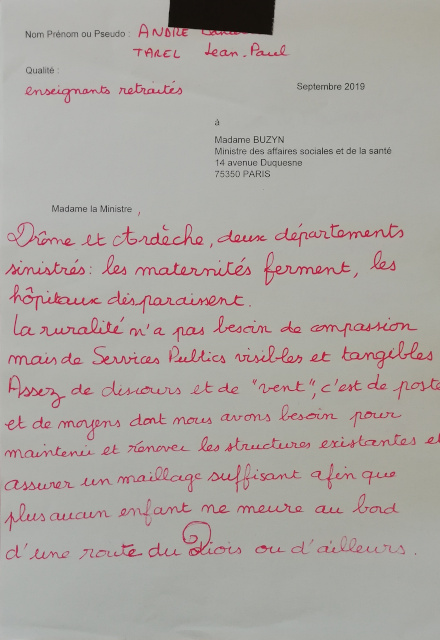 Nom Prénom ou Pseudo : ANDRE
TAREL Jean-Paul
Qualité :
enseignants retraités
Septembre 2019
à
Madame BUZYN
Ministre des affaires sociales et de la santé
14 avenue Duquesne
75350 PARIS
Madame la Ministre ,
Drôme et Ardèche, deux départements
sinistrés : les maternités ferment, les
hôpitaux disparaissent.
La ruralité n'a pas besoin de compassion
mais de Services Publics visibles et tangibles
Assez de discours et de "vent", c'est de poste
et de moyens dont nous avons besoin pour
maintenir et rénover les structures existantes et
assurer un maillage suffisant afin que
plus aucun enfant ne meure au bord
d'une route du Diois ou d'ailleurs.